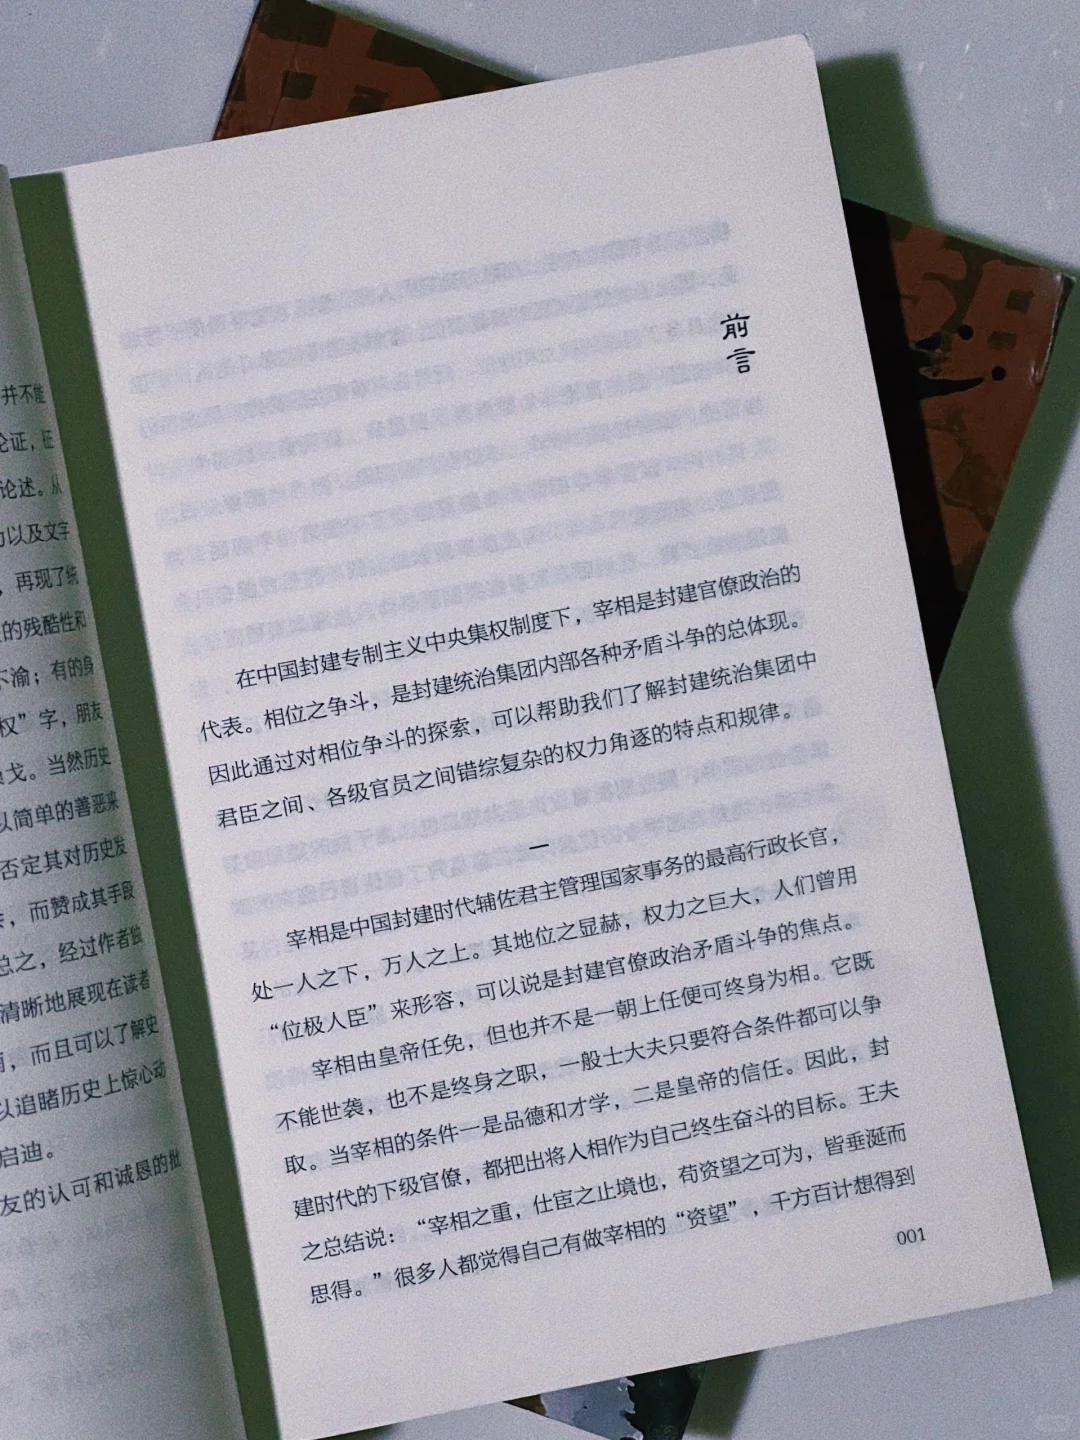 并不能
论证，
论述。从
力以及文字
，再现了统
的残酷性和
不渝；有的身
权”字，朋友
戈。当然历史
以简单的善恶来
否定其对历史发
，而赞成其手段
总之，经过作者独
清晰地展现在读者
，而且可以了解史
以追睹历史上惊心动
启迪。
友的认可和诚恳的批
前言
在中国封建专制主义中央集权制度下，宰相是封建官僚政治的
代表。相位之争斗，是封建统治集团内部各种矛盾斗争的总体现。
因此通过对相位争斗的探索，可以帮助我们了解封建统治集团中
君臣之间、各级官员之间错综复杂的权力角逐的特点和规律。
一
宰相是中国封建时代辅佐君主管理国家事务的最高行政长官，
处一人之下，万人之上。其地位之显赫，权力之巨大，人们曾用
“位极人臣”来形容，可以说是封建官僚政治矛盾斗争的焦点。
宰相由皇帝任免，但也并不是一朝上任便可终身为相。它既
不能世袭，也不是终身之职，一般士大夫只要符合条件都可以争
取。当宰相的条件一是品德和才学，二是皇帝的信任。因此，封
建时代的下级官僚，都把出将入相作为自己终生奋斗的目标。王夫
之总结说：“宰相之重，仕宦之止境也，苟资望之可为，皆垂涎而
思得。”很多人都觉得自己有做宰相的“资望”，千方百计想得到
001